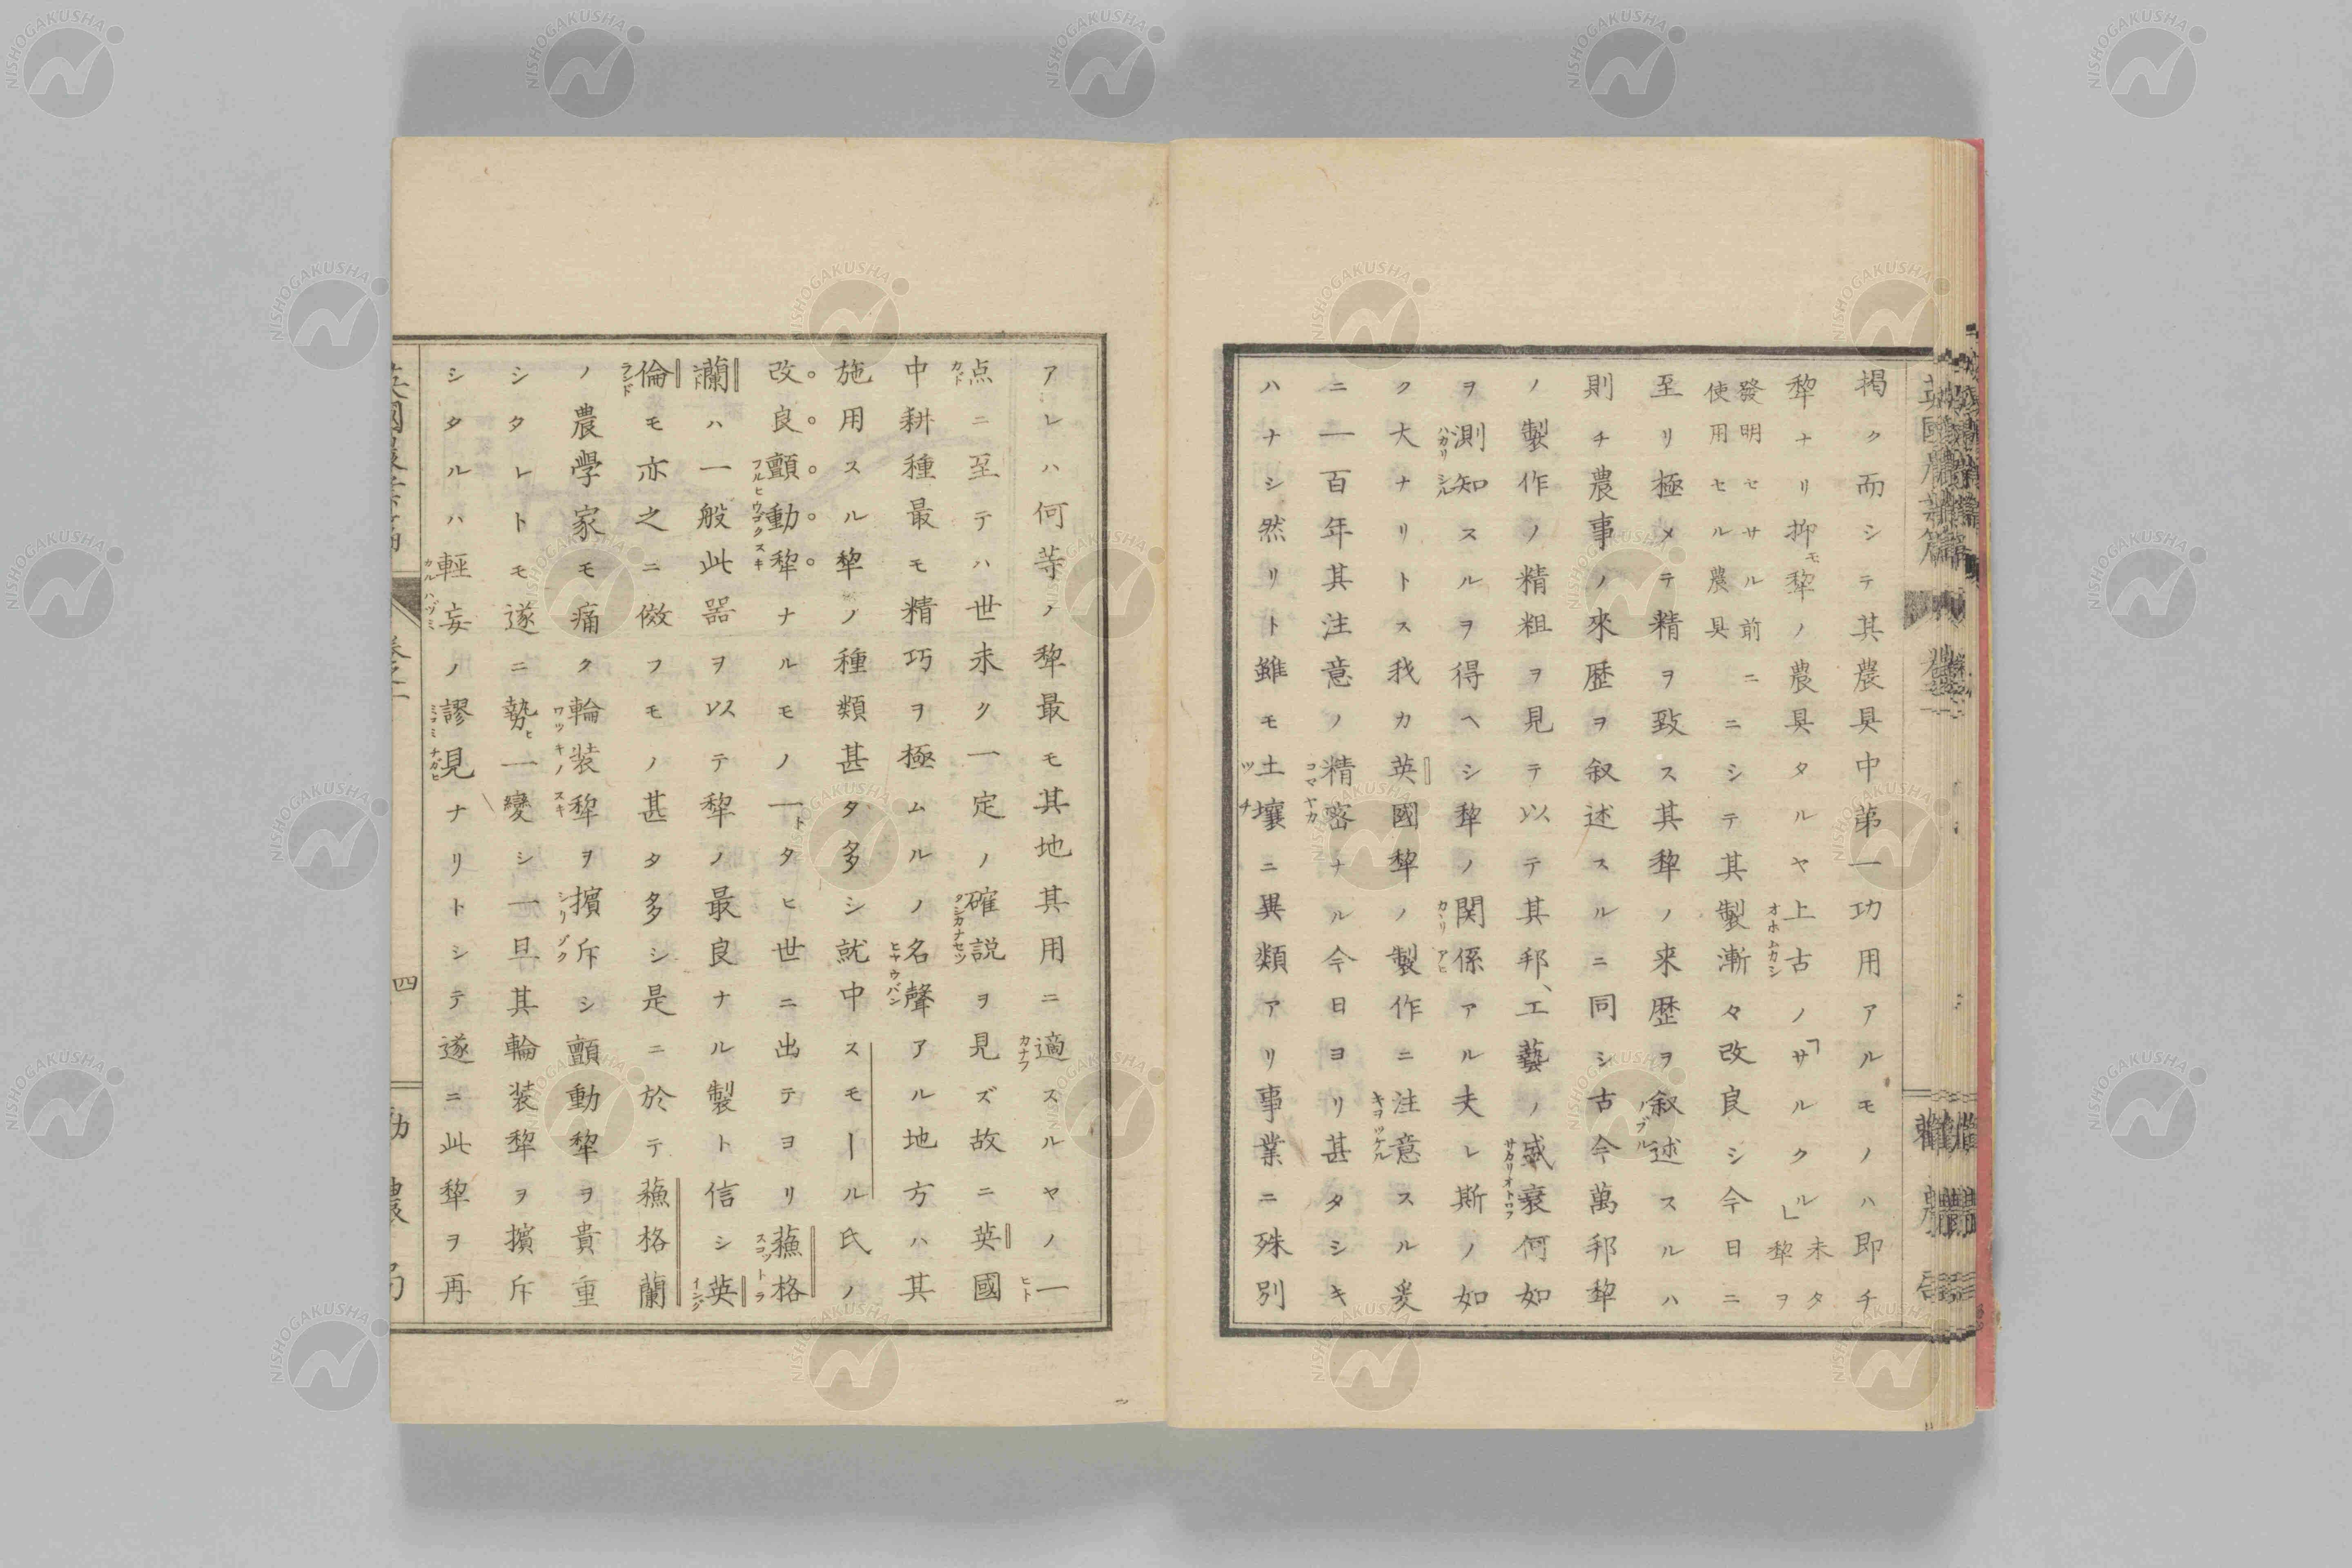 掲ク而シテ其農具中第一功用アルモノハ即チ
犂ナリ抑モ犂ノ農具タルヤ上古ノ「サルクル」未タ犂ヲ
發明セサル前ニ使用セル農具ニシテ其製漸々改良シ今日ニ
至リ極メテ精ヲ致ス其犂ノ来歴ヲ叙述スルハ
則チ農事ノ來歴ヲ叙述スルニ同シ古今萬邦犂
ノ製作ノ精粗ヲ見テ以テ其邦、工藝ノ盛衰何如
ヲ測知スルヲ得ヘシ犂ノ関係アル夫レ斯ノ如
ク大ナリトス我カ英國犂ノ製作ニ注意スル爰
ニ一百年其注意ノ精密ナル今日ヨリ甚タシキ
ハナシ然リト雖モ土壤ニ異類アリ事業ニ殊別
アレハ何等ノ犂最モ其地其用ニ適スルヤノ一
点ニ至テハ世未ク一定ノ確説ヲ見ズ故ニ英國
中耕種最モ精巧ヲ極ムルノ名聲アル地方ハ其
施用スル犂ノ種類甚タ多シ就中スモール氏ノ
改良顫動犂ナルモノ一タヒ世ニ出テヨリ蘓格
蘭ハ一般此噐ヲ以テ犂ノ最良ナル製ト信シ英
倫モ亦之ニ傚フモノ甚タ多シ是ニ於テ蘓格蘭
ノ農學家モ痛ク輪装犂ヲ擯斥シ顫動犂ヲ貴重
シタレトモ遂ニ勢一變シ一旦其輪装犂ヲ擯斥
シタルハ輕妄ノ謬見ナリトシテ遂ニ此犂ヲ再
四